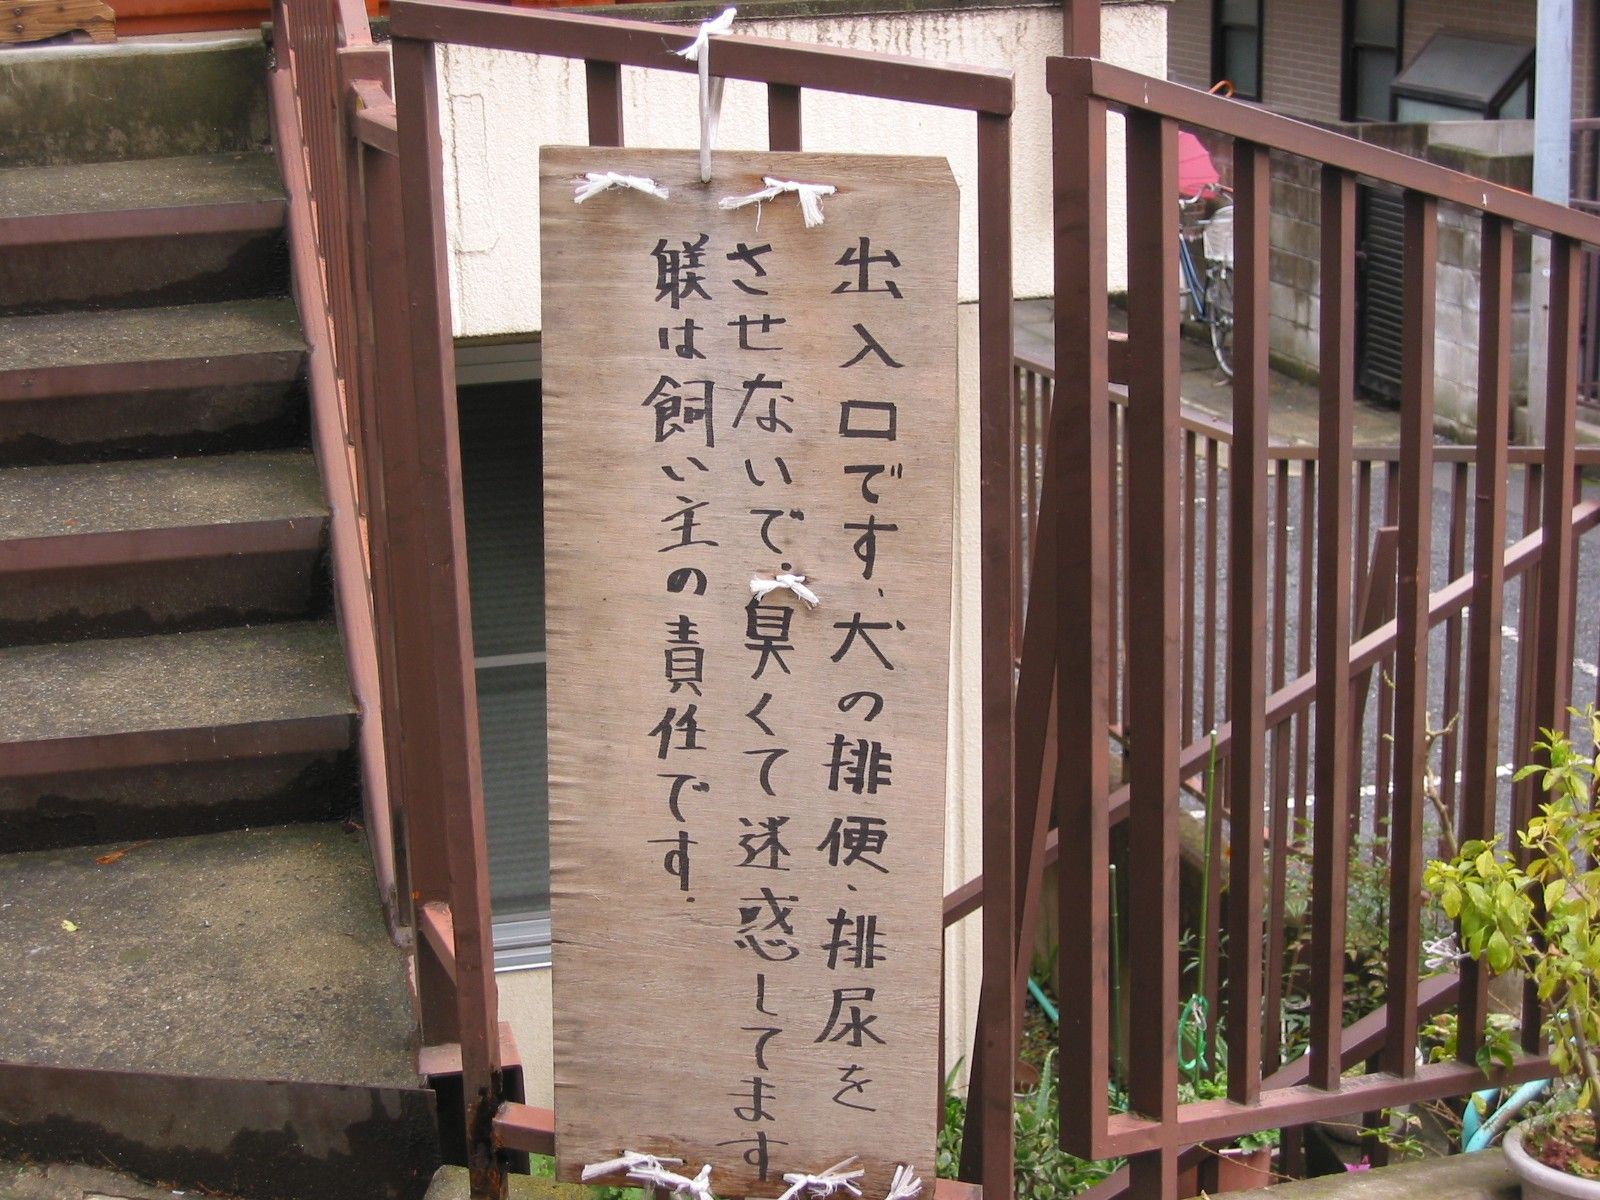 出入口です、犬の排便・排尿を
させないで・臭くて迷惑してます
躾は飼い主の責任です.